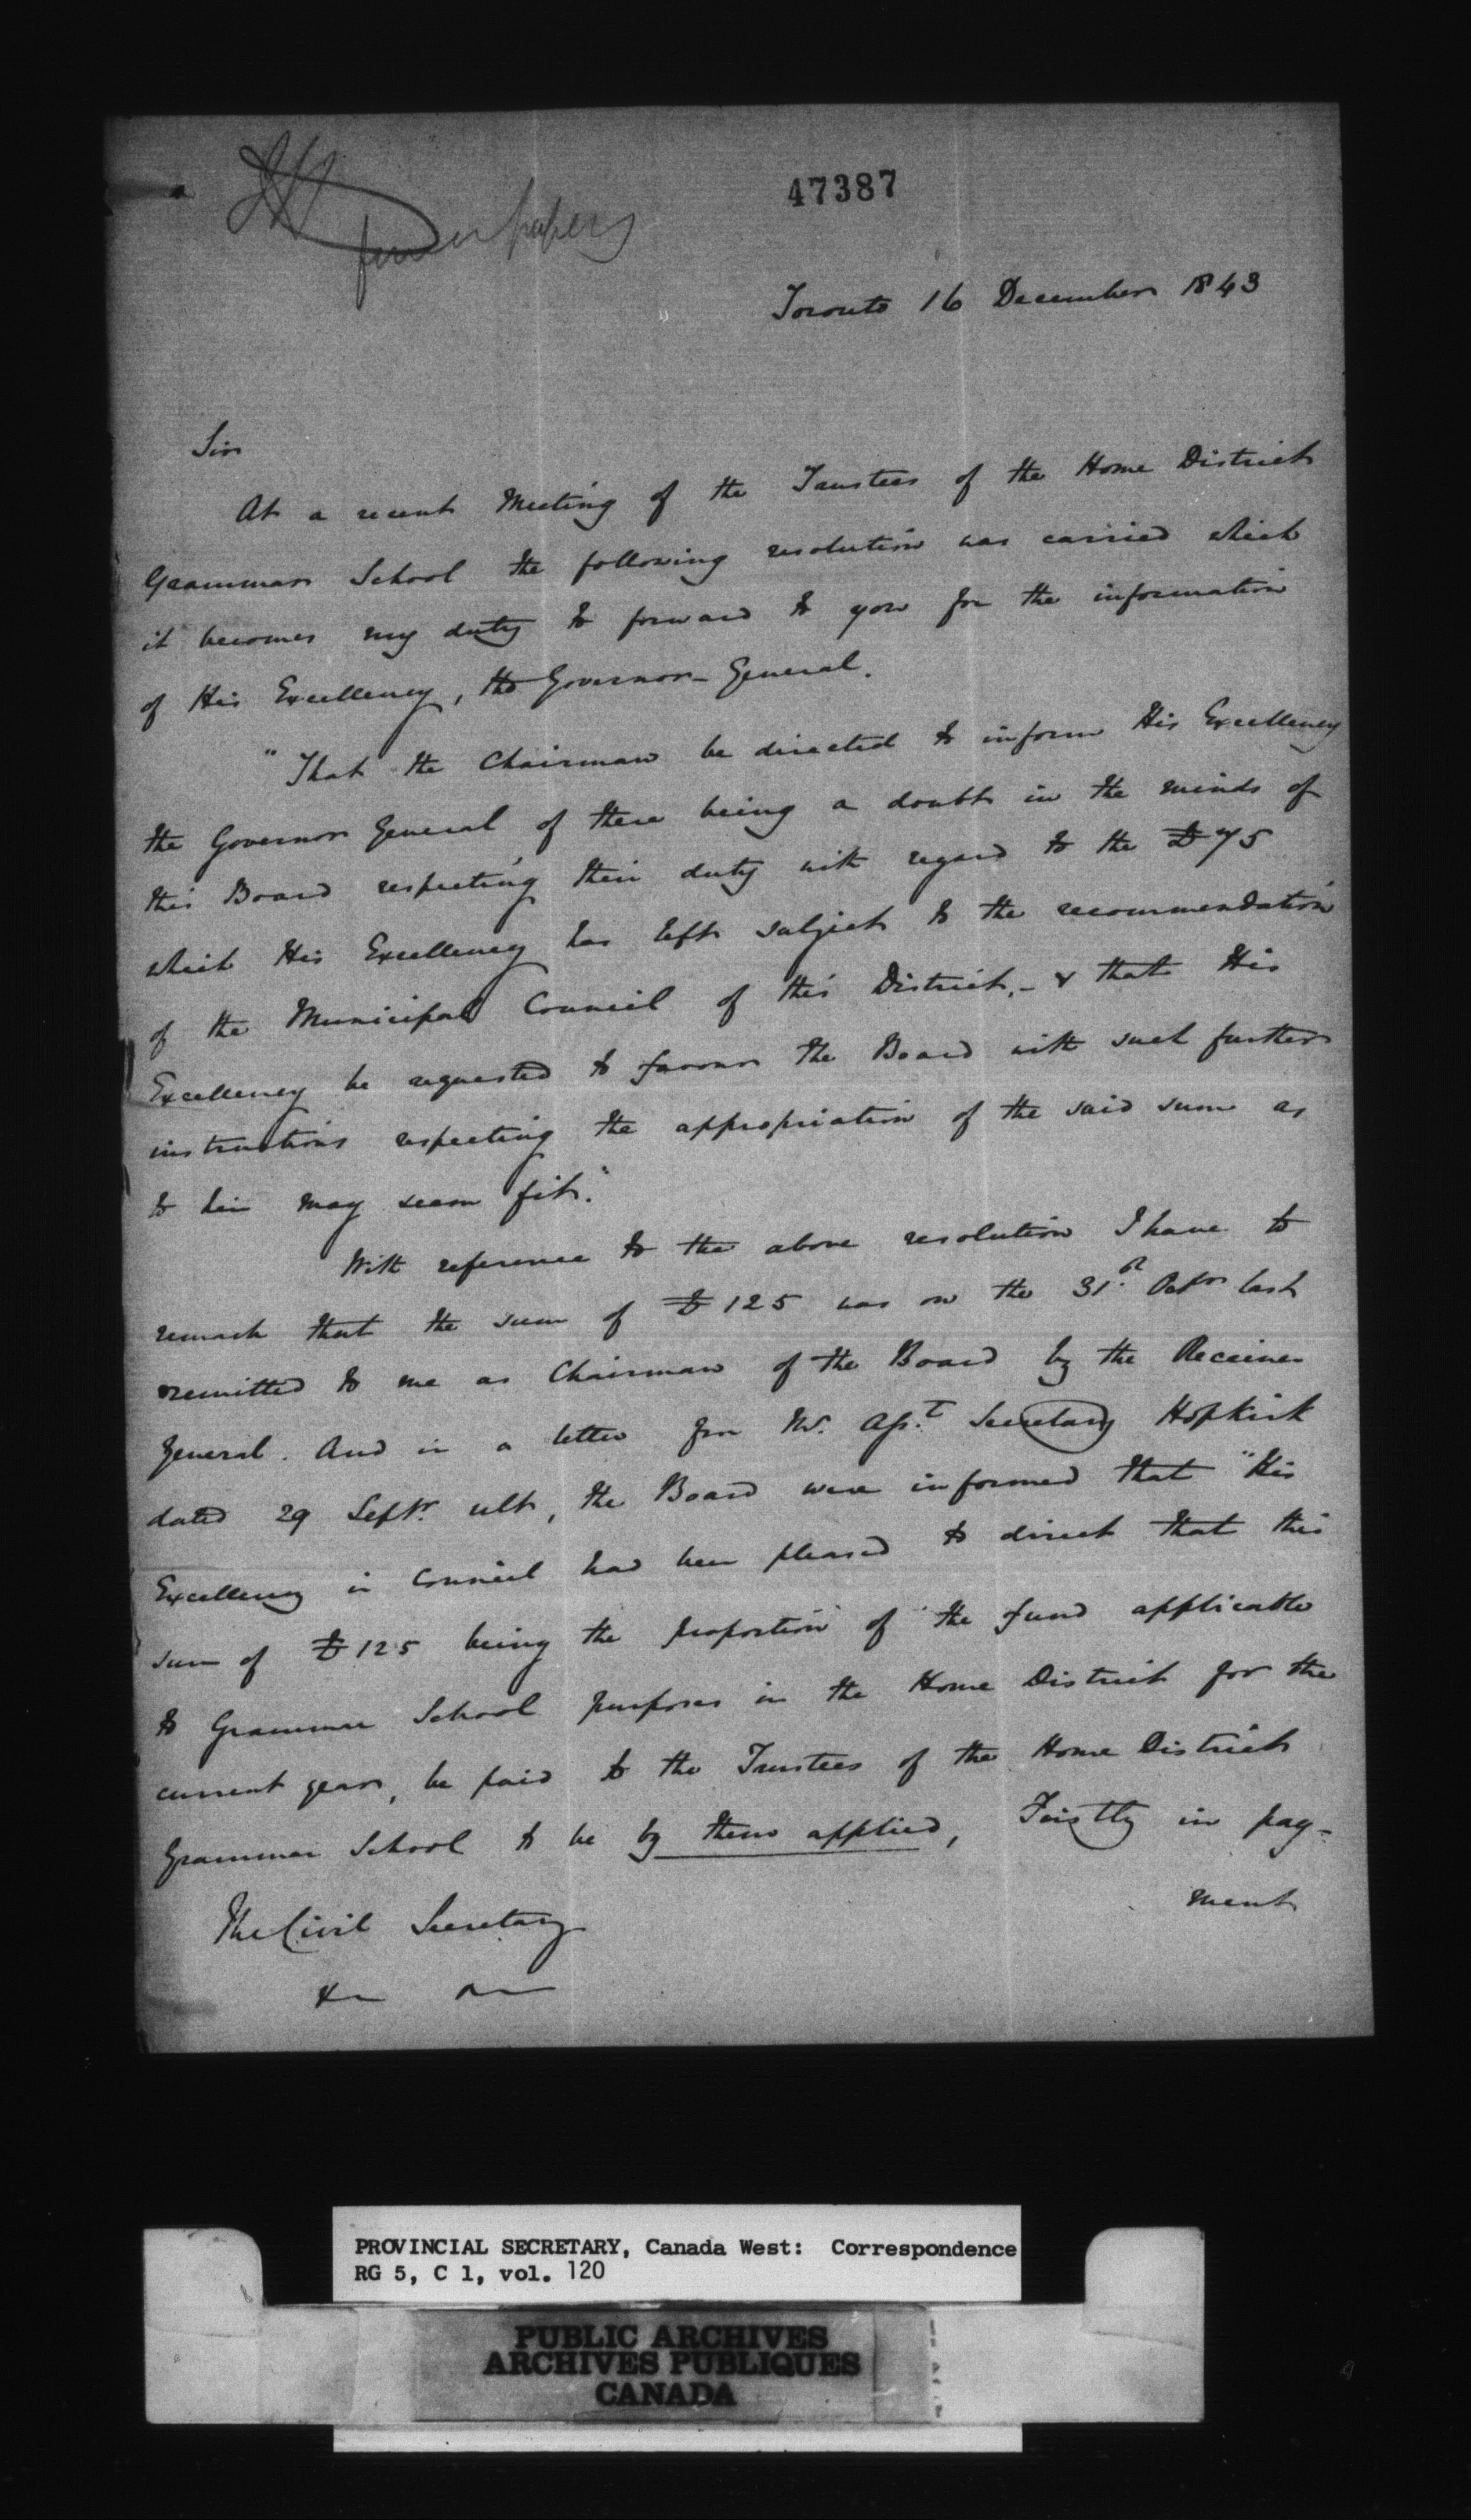 47387
papers
Toronto 16 December 1843
Sir
At a recent Meeting of the Trustees of the Home District
Grammar School the following resolution was carried which
it becomes my duty to forward to you for the information
of His Excellency, the Governor-General.
"That the Chairman be directed to inform His Excellency
the Governor General of there being a doubt in the minds of
this Board respecting their duty with regard to the £75
which His Excellency has left subject to the recommendation
of the Municipal Council of this District,- & that His
Excellency be requested to favour the Board with such further
instructions respecting the appropriation of the said sum as
to him may seem fit."
With reference to the above resolution I have to
remark that the sum of £125 was on the 31st Octr last
remitted to me as Chairman of the Board by the Receiver
General. And in a letter from Mr. Asst Secretary Hopkirk
dated 29 Septr. ult, the Board were informed that "His
Excellency in Council had been pleased to direct that this
sum of £125 being the proportion of the fund applicable
to Grammar School purposes in the Home District for the
current year, be paid to the Trustees of the Home District
Grammar School to be by them applied, Firstly in pay-
ment
The Civil Secretary
PROVINCIAL SECRETARY, Canada West: Correspondence
RG 5, C 1, vol. 120
PUBLIC ARCHIVES
ARCHIVES PUBLIQUES
CANADA